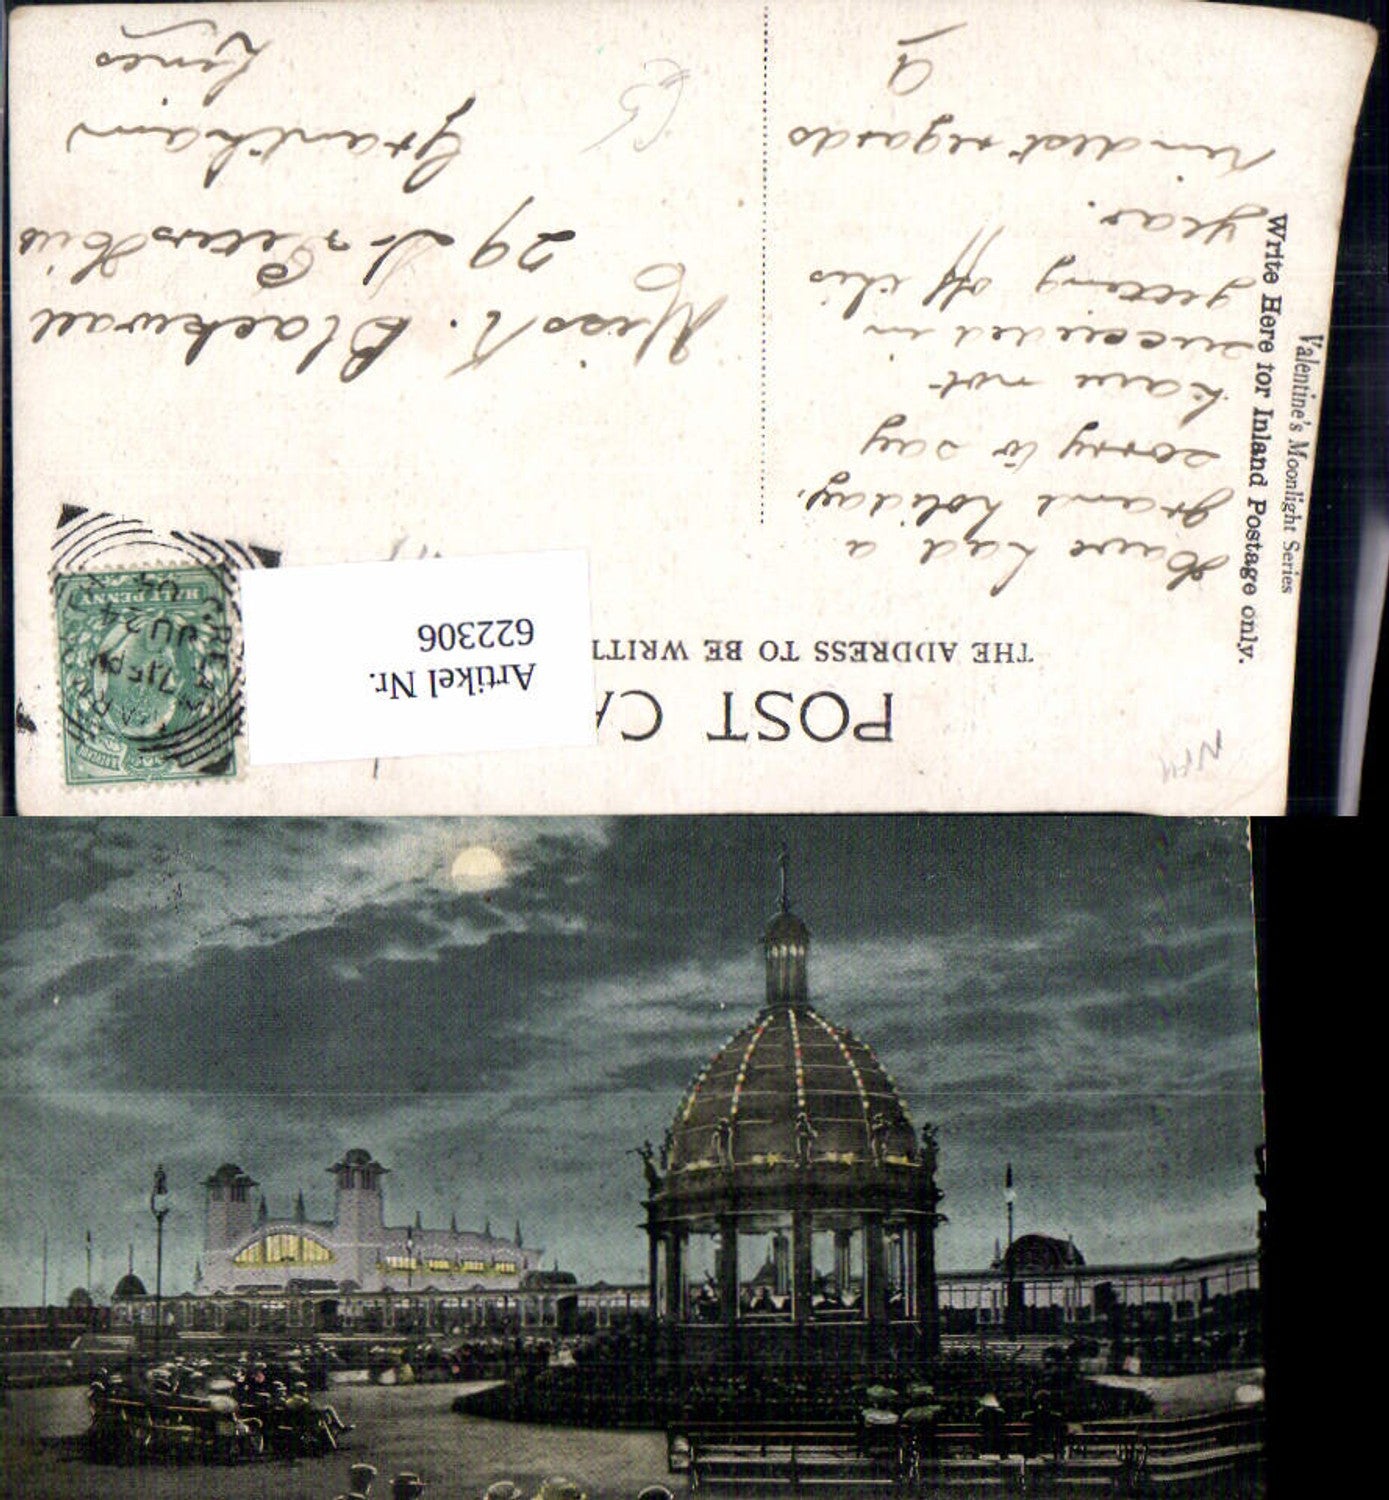 Valentine's Moonlight Series
Write Here for Inland Postage only.
POST CA
THE ADDRESS TO BE WRITT
Artikel Nr.
622306
Have had a
grand holiday.
sorry to say
have not
succeeded in
getting off this
year.
kindest regards
a
Miss K. Blackwall
29 St Peters Hill
Grantham
Lincs
HALF PENNY
7.15 PM
JU 24